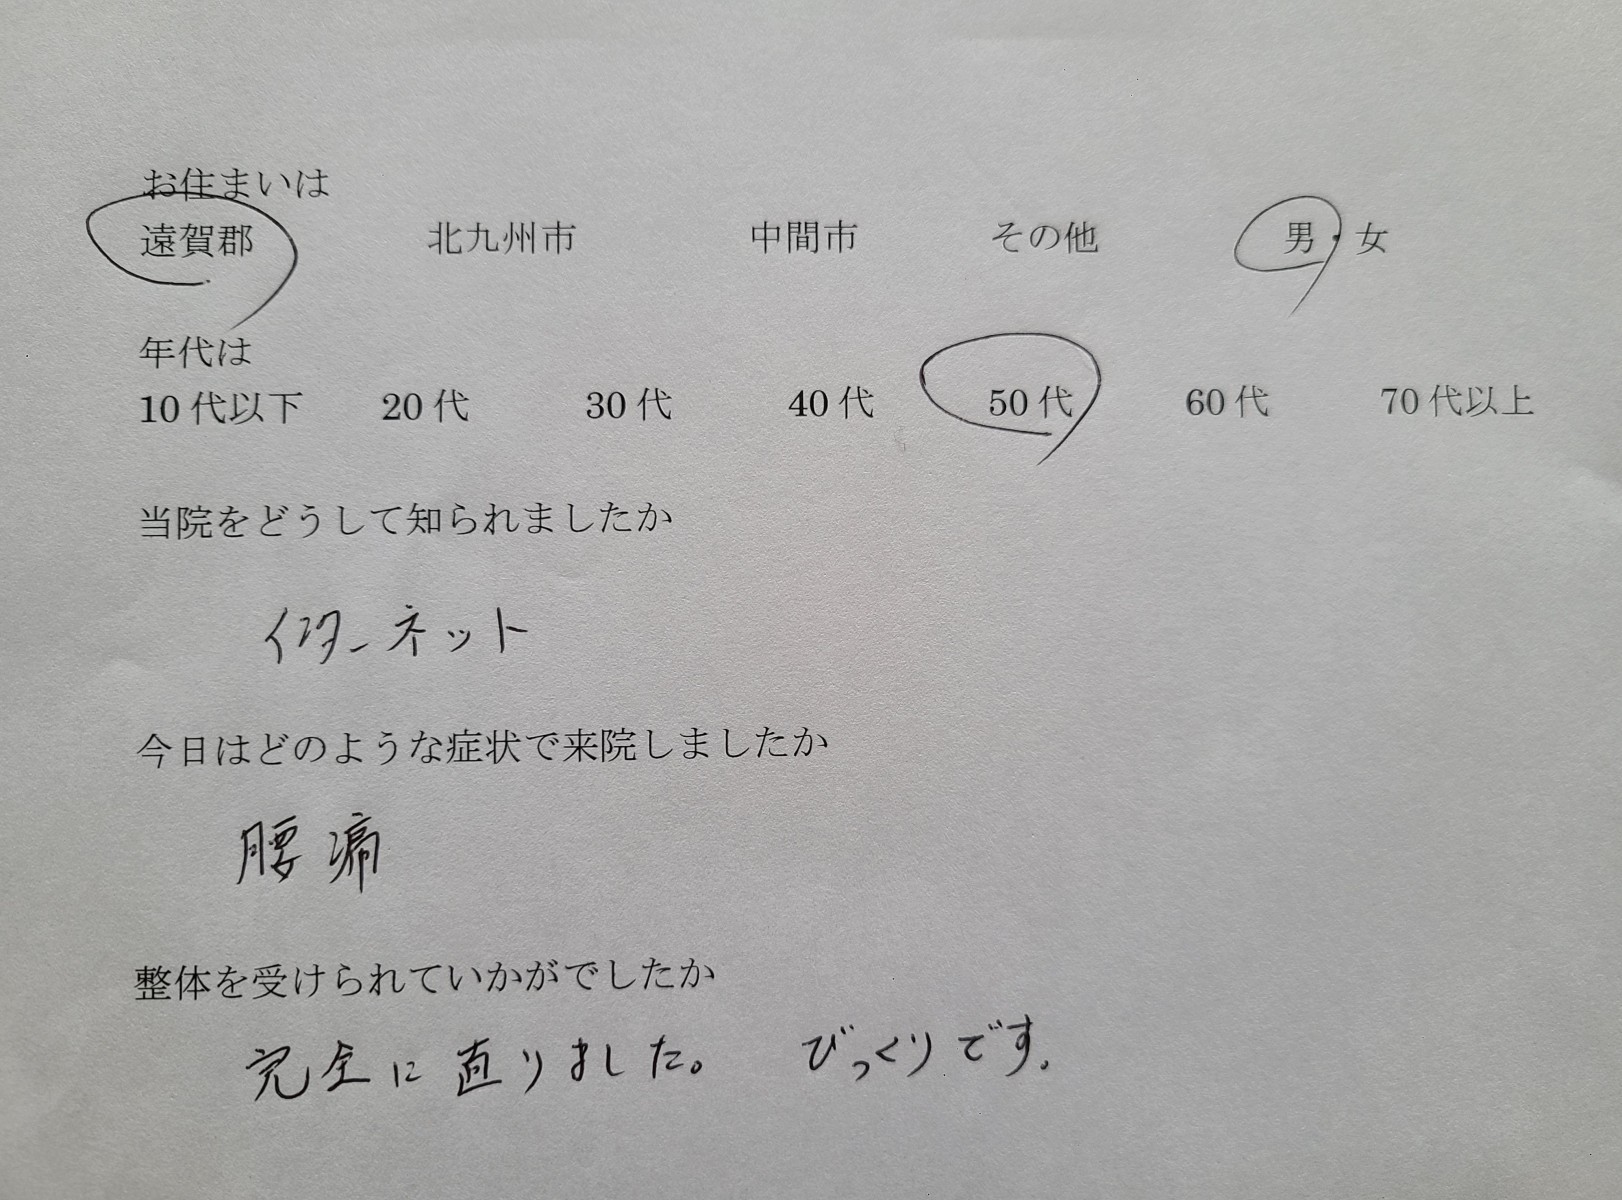 お住まいは
遠賀郡 北九州市 中間市 その他 男・女
年代は
10代以下 20代 30代 40代 50代 60代 70代以上
当院をどうして知られましたか
インターネット
今日はどのような症状で来院しましたか
腰痛
整体を受けられていかがでしたか
完全に直りました。 びっくりです。